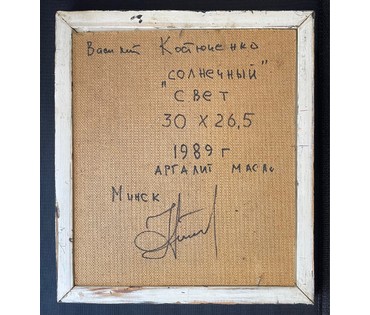 Василий Костюченко
"СОЛНЕЧНЫЙ"
СВЕТ
30 х 26,5
1989 г
АРГАЛИТ МАСЛО
Минск